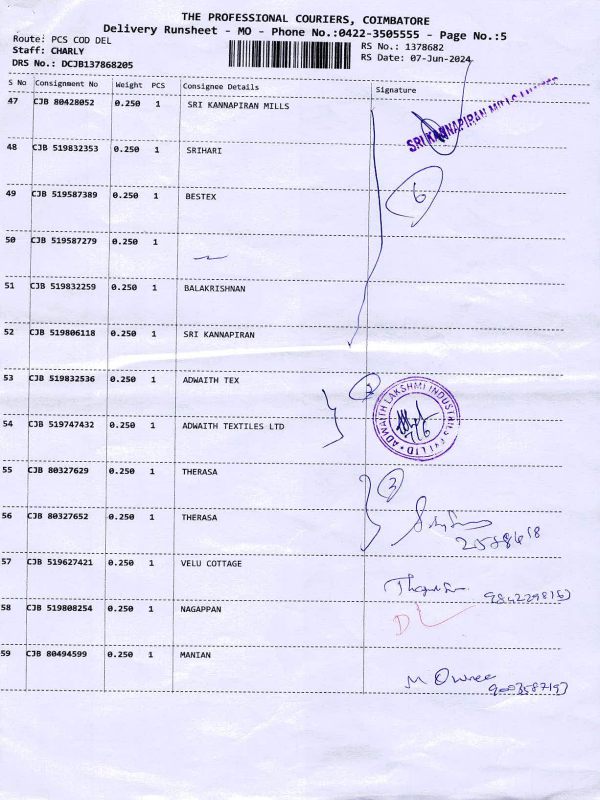 THE PROFESSIONAL COURIERS, COIMBATORE
Delivery Runsheet - MO - Phone No.:0422-3505555 - Page No.:5
Route: PCS COD DEL
Staff: CHARLY
DRS No.: DCJB137868205
RS No.: 1378682
RS Date: 07-Jun-2024
S No Consignment No Weight PCS Consignee Details Signature
47 CJB 80428052 0.250 1 SRI KANNAPIRAN MILLS
SRI KANNAPIRAN MILLS
48 CJB 519832353 0.250 1 SRIHARI
6
49 CJB 519587389 0.250 1 BESTEX
50 CJB 519587279 0.250 1
51 CJB 519832259 0.250 1 BALAKRISHNAN
52 CJB 519806118 0.250 1 SRI KANNAPIRAN
53 CJB 519832536 0.250 1 ADWAITH TEX
ADWAITH LAKSHMI INDUSTRIES PVT LTD
7/6
54 CJB 519747432 0.250 1 ADWAITH TEXTILES LTD
55 CJB 80327629 0.250 1 THERASA
2
56 CJB 80327652 0.250 1 THERASA
57 CJB 519627421 0.250 1 VELU COTTAGE
58 CJB 519808254 0.250 1 NAGAPPAN
D
59 CJB 80494599 0.250 1 MANIAN
M Owner